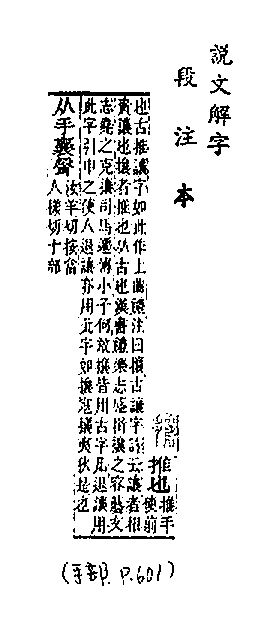 說文解字
段注本
推也推手
使前
也古推讓字如此作上曲禮注曰攘古讓字許云讓者相
責讓也攘者推也从古也漢書禮樂志盛揖讓之容藝文
志堯之克攘司馬遷傳小子何敢攘皆用古字凡退讓用
此字引申之使人退讓亦用此字如攘寇攘夷狄是也
从手襄聲汝羊切按當
人樣切十部
(手部.P.601)